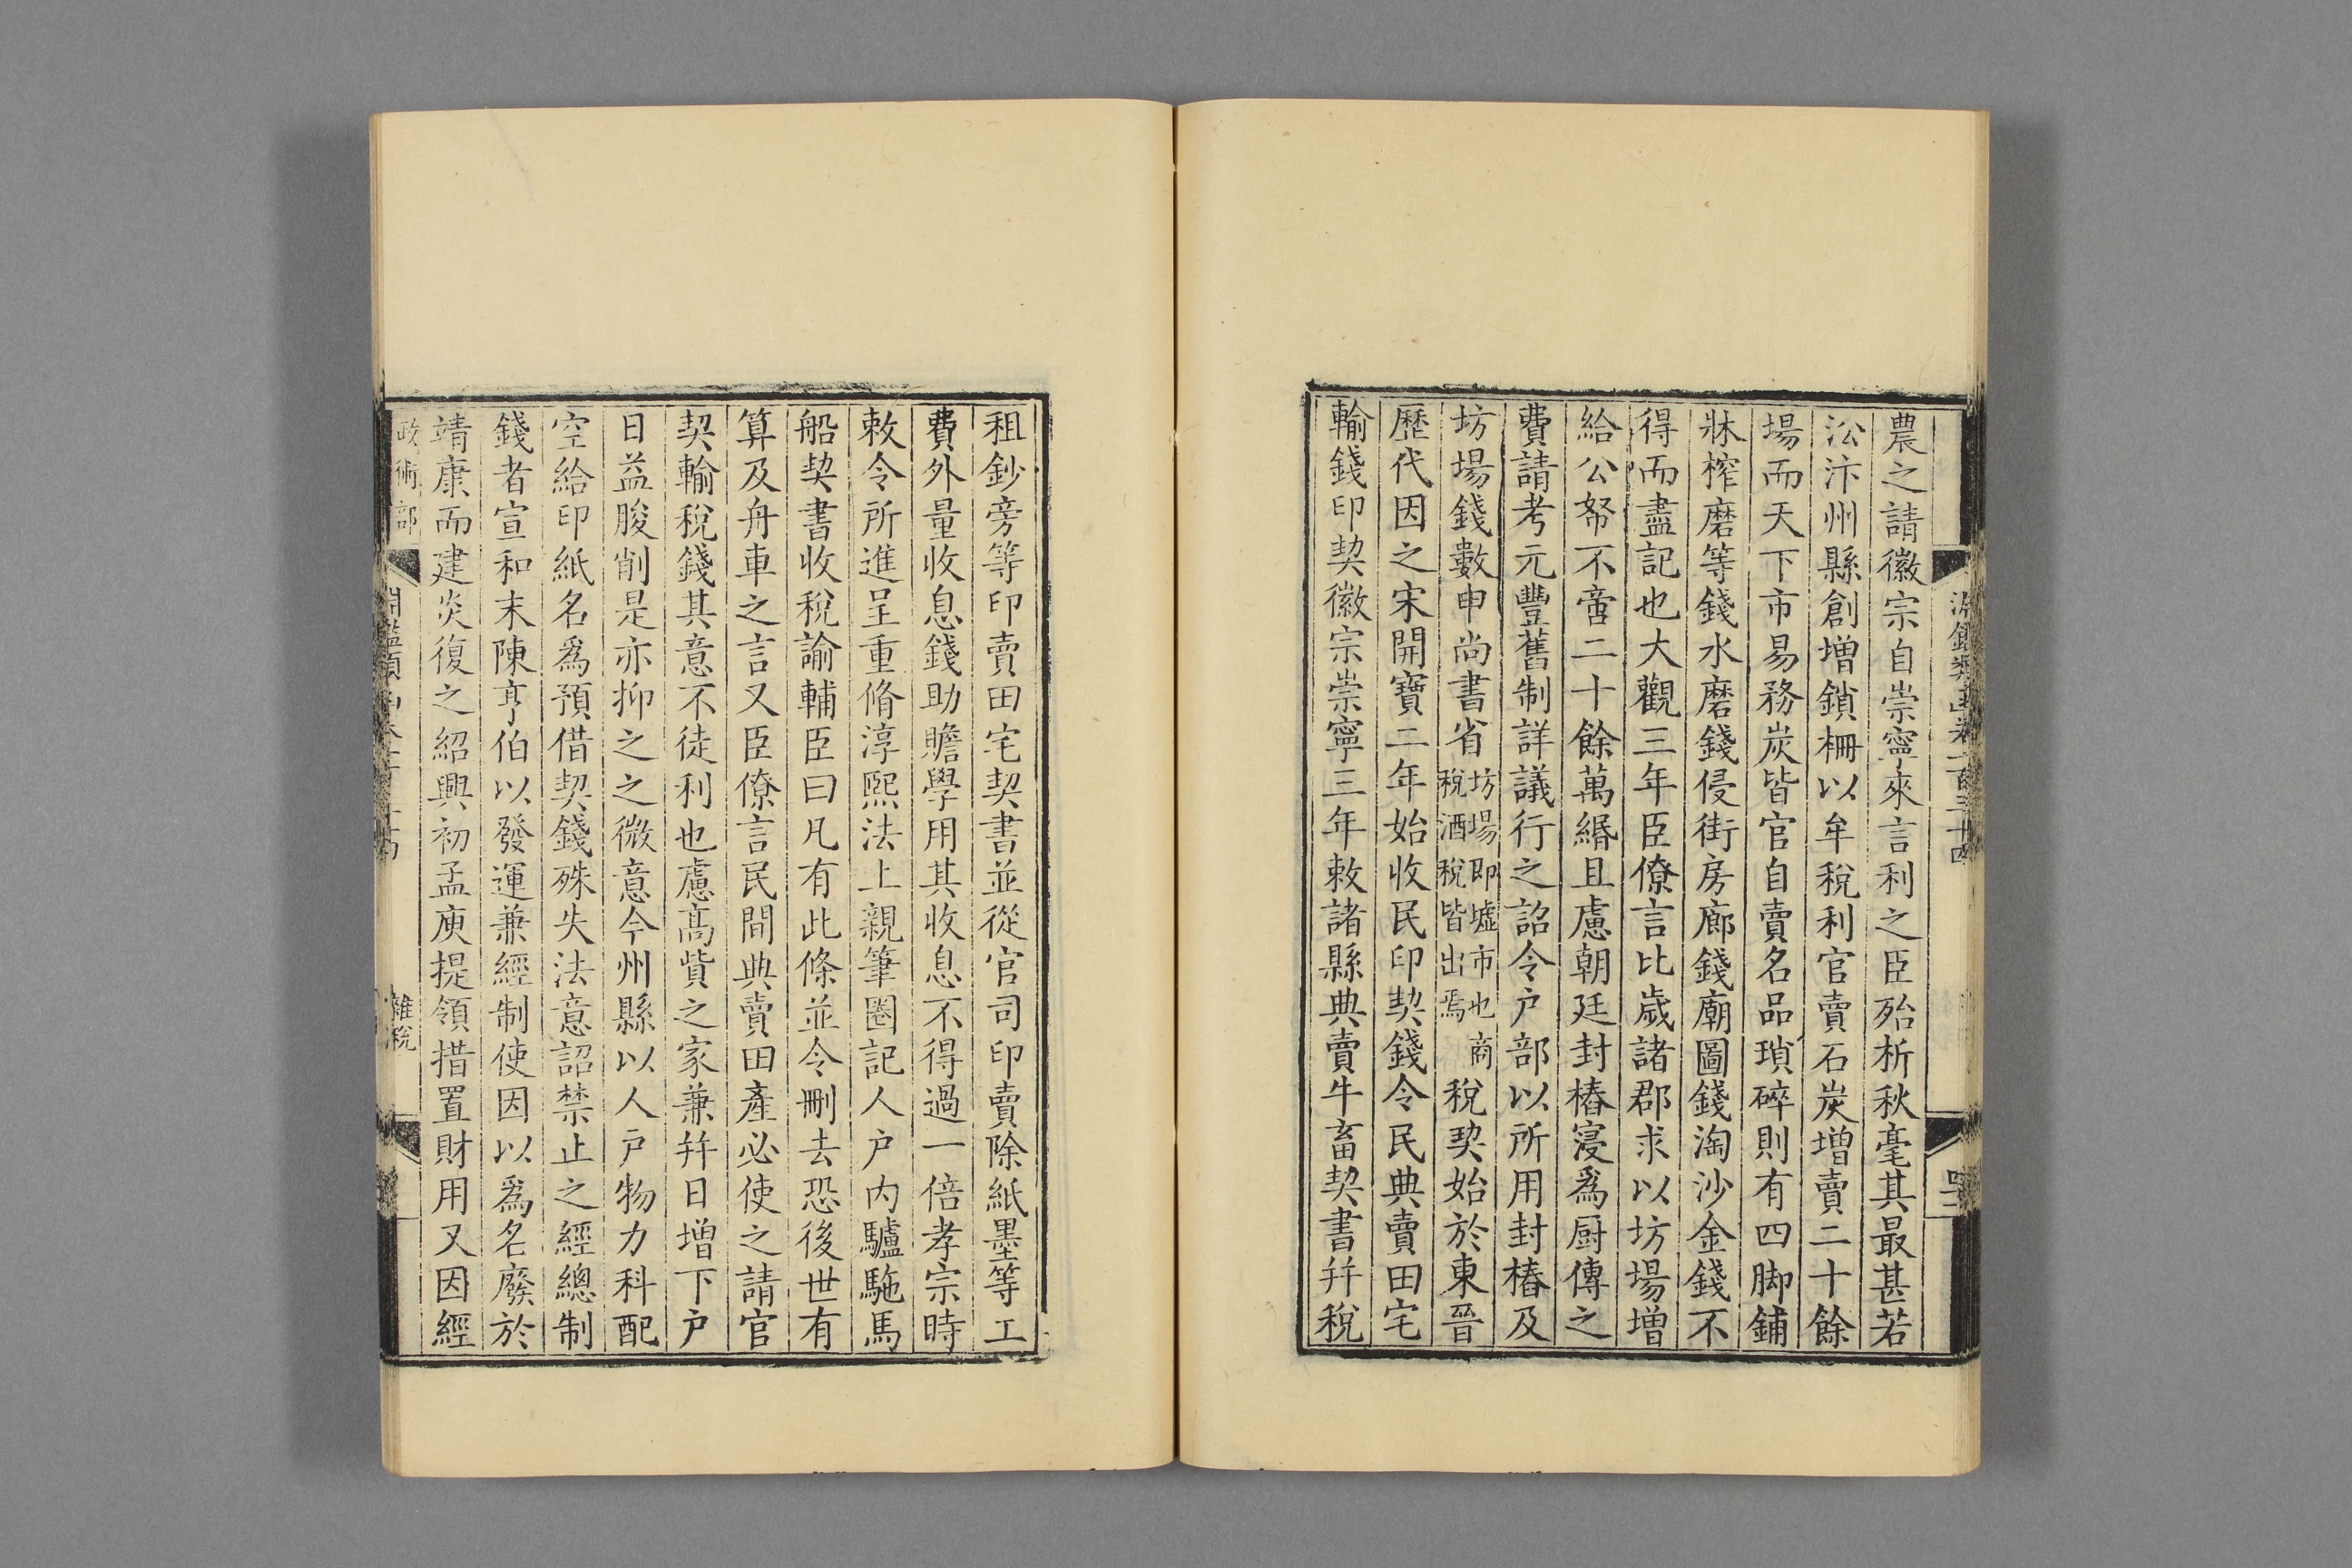 淵鑑類函卷一百三十四
農之請徽宗自崇寧來言利之臣殆析秋毫其最甚若
㳂汴州縣創增鎖柵以牟稅利官賣石炭增賣二十餘
場而天下市易務炭皆官自賣名品瑣碎則有四脚鋪
牀榨磨等錢水磨錢侵街房廊錢廟圖錢淘沙金錢不
得而盡記也大觀三年臣僚言比歲諸郡求以坊場增
給公帑不啻二十餘萬緡且慮朝廷封樁寖爲厨傳之
費請考元豐舊制詳議行之詔令户部以所用封樁及
坊場錢數申尚書省坊場即墟市也商稅酒稅皆出焉稅契始於東晉
歷代因之宋開寶二年始收民印契錢令民典賣田宅
輸錢印契徽宗崇寧三年敕諸縣典賣牛畜契書并稅
租鈔旁等印賣田宅契書並從官司印賣除紙墨等工
費外量收息錢助贍學用其收息不得過一倍孝宗時
敕令所進呈重脩淳熙法上親筆圈記人户內驢駞馬
船契書收稅諭輔臣曰凡有此條並令刪去恐後世有
算及舟車之言又臣僚言民間典賣田產必使之請官
契輸稅錢其意不徒利也慮高貲之家兼并日增下户
日益朘削是亦抑之之微意今州縣以人户物力科配
空給印紙名爲預借契錢殊失法意詔禁止之經總制
錢者宣和末陳亨伯以發運兼經制使因以爲名廢於
靖康而建炎復之紹興初孟庾提領措置財用又因經
政術部
雜稅